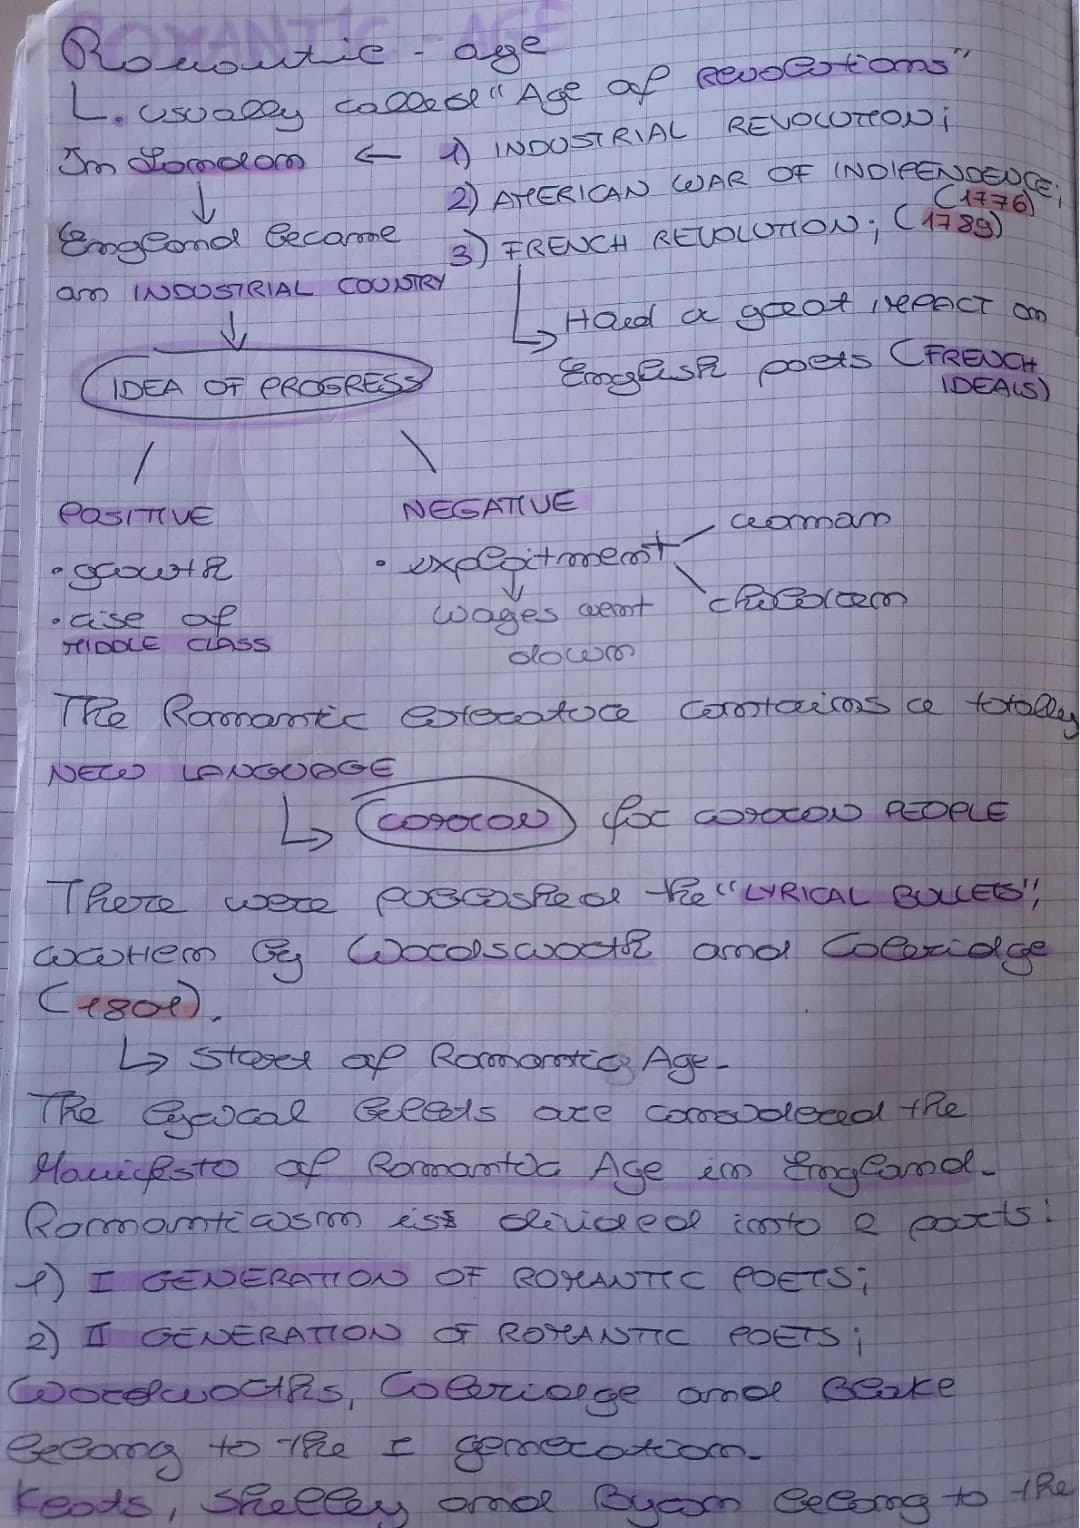 Romantic - age
↳ usually called "Age of Revolutions"
In London ← 1) INDUSTRIAL REVOLUTION;
2) AMERICAN WAR OF INDIPENDENCE; (1776)
England became
3) FRENCH REVOLUTION; (1789)
an INDUSTRIAL COUNTRY
↳ Had a great IMPACT on
English poets (FRENCH IDEALS)
IDEA OF PROGRESS
POSITIVE
NEGATIVE
• growth
• rise of
MIDDLE CLASS
• exploitment
woman
children
wages went
down
The Romantic literature contains a totally
NEW LANGUAGE
↳ COMMON for COMMON PEOPLE
There were published the "LYRICAL BULLETS",
written by Wordsworth and Coleridge
(1801).
↳ Start of Romantic Age.
The lyrical ballads are considered the
Manifesto of Romantic Age in England.
Romanticism is divided into 2 parts:
1) I GENERATION OF ROMANTIC POETS;
2) II GENERATION OF ROMANTIC POETS;
Wordworths, Coleridge and Blake
belong to the I generation.
Keads, Shelley and Byron belong to the